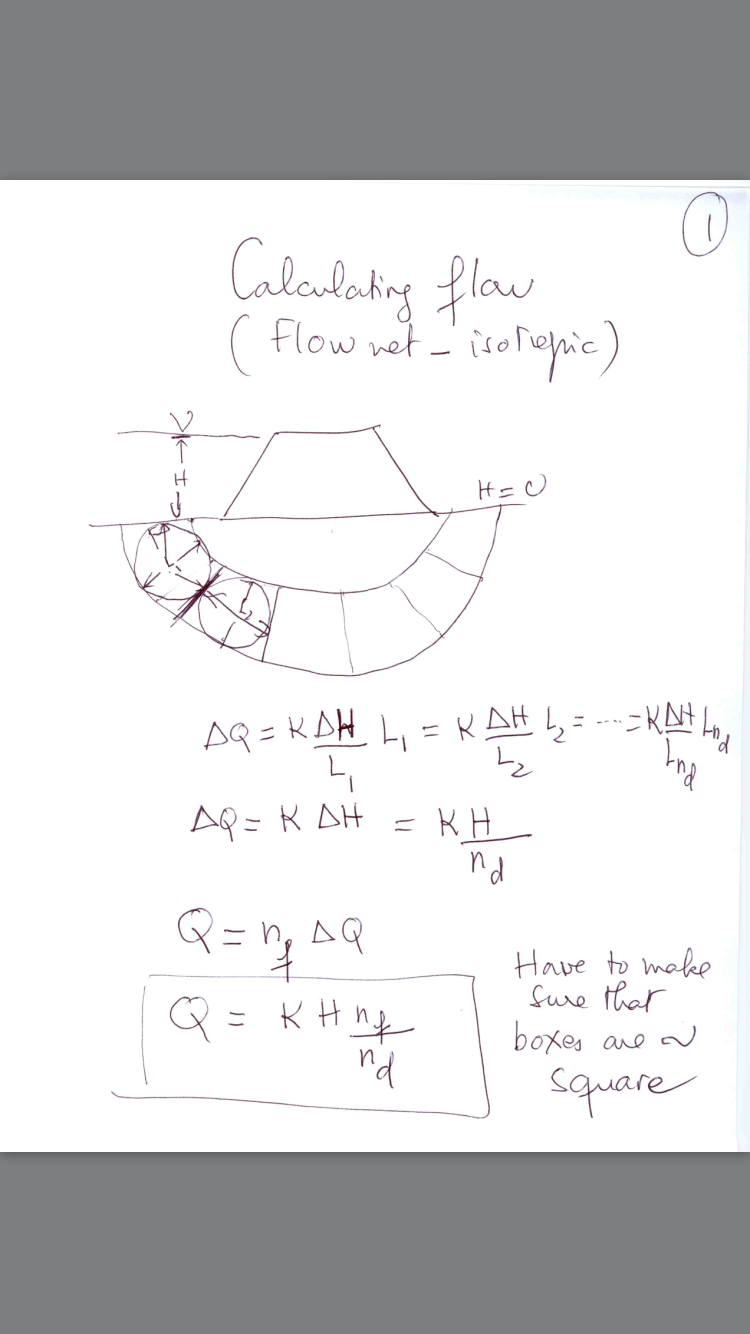 1
Calculating flow
( Flow net - isotropic)
H
H = 0
L1
L2
ΔQ = K ΔH/L1 L1 = K ΔH/L2 L2 = ---- = K ΔH/Lnd Lnd
ΔQ = K ΔH = K H/nd
Q = nf ΔQ
Q = K H nf/nd
Have to make
sure that
boxes are ~
square